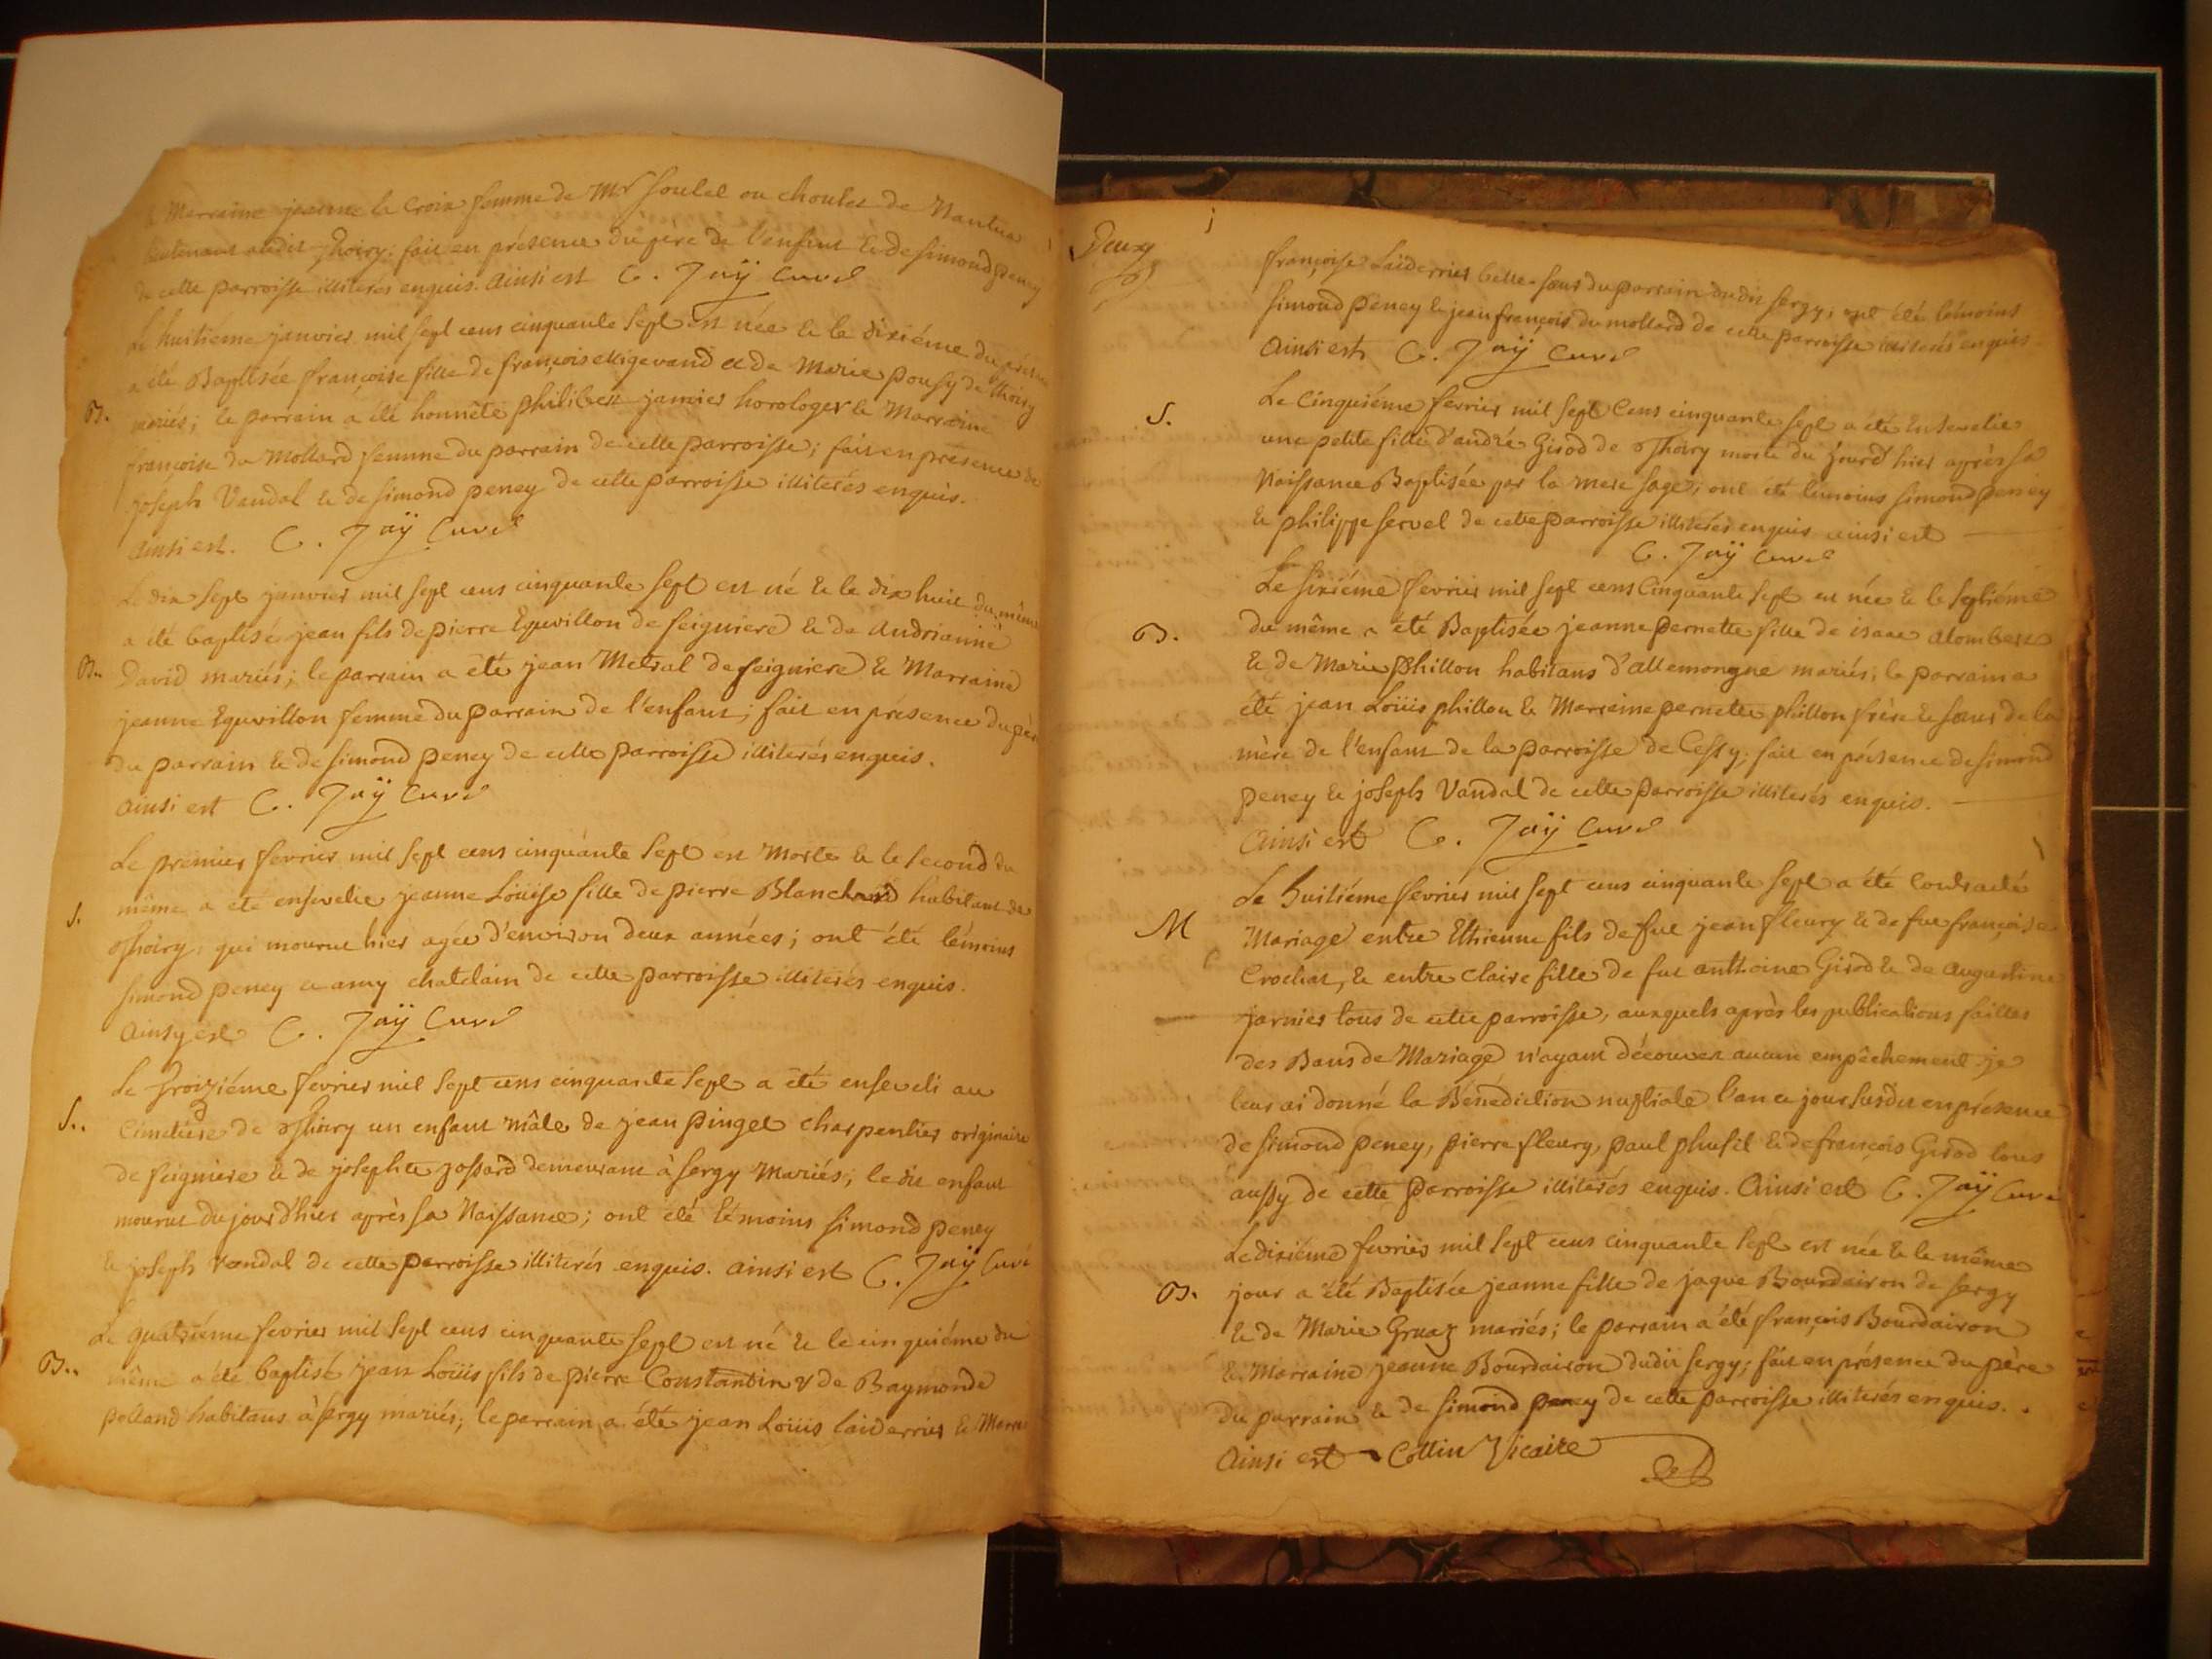 Marraine jeanne la Croix femme de Mr Soulet ou choulet de Nantua
audit Thoiry: fait en présence du père de l'enfant & de simond peney
de cette parroisse illiterés enquis. Ainsi est C. Jaÿ Curé
Le huitiéme janvier mil sept cens cinquante sept est née & le dixiéme du
a été Baptisée françoise fille de françois et de Marie de Thoiry
B. mariés; le parrain a été honnête philibert janvier horologer & Marraine
françoise du Mollard femme du parrain de cette parroisse; fait en présence de
joseph Vandal & de simond peney de cette parroisse illiterés enquis.
Ainsi est. C. Jaÿ Curé
Le dix sept janvier mil sept cens cinquante sept est né & le dix huit du même
a été baptisé jean fils de pierre Equvillon de feigniere & de Andrianne
B. David mariés; le parrain a été jean Metral de feigniere & Marraine
jeanne Equvillon femme du parrain de l'enfant; fait en présence du père
du parrain & de simond peney de cette parroisse illiterés enquis.
Ainsi est C. Jaÿ Curé
Le premier fevrier mil sept cens cinquante sept est Morte & le second du
S. même a été ensevelie jeanne Loüise fille de pierre Blanchard habitant de
Thoiry; qui mourut hier agée d'environ deux années; ont été témoins
simond peney et amy chatelain de cette parroisse illiterés enquis.
Ainsy est C. Jaÿ Curé
Le Troiziéme fevrier mil sept cens cinquante sept a été enseveli au
S.. Cimetiere de Thoiry un enfant mâle de jean pinget charpentier originaire
de feigniere & de josephte jossard demeurant à sergy Mariés; le dit enfant
mourut du jour d'hier après sa Naissance; ont été témoins simond peney
& joseph Vandal de cette parroisse illiterés enquis. Ainsi est C. Jaÿ Curé
Le quatriéme fevrier mil sept cens cinquante sept est né & le cinquiéme du
B.. même a été baptisé jean Loüis fils de pierre Constantin & de Raymonde
polland habitans à sergy mariés; le parrain a été jean Loüis laiderrier &
Deux
françoise Laiderrier belle-sœur du parrain dudit sergy; ont été témoins
simond peney & jean françois du mollard de cette parroisse illiterés enquis
Ainsi est C. Jaÿ Curé
Le Cinquiéme fevrier mil sept Cens cinquante sept a été Ensevelie
S. une petite fille d'andré Girod de Thoiry morte du jourd'hier après sa
Naissance Baptisée par la mere sage; ont été témoins simond peney
& philippe servel de cette parroisse illiterés enquis ainsi est
C. Jaÿ Curé
Le sixiéme fevrier mil sept cens Cinquante sept est née & le septiéme
B. du même a été Baptisée jeanne pernette fille de isaac alombert
& de Marie phillon habitans d'allemongne mariés; le parrain a
été jean Loüis phillon & Marraine pernette phillon frère & sœur de la
mère de l'enfant de la parroisse de Cessy; fait en présence de simond
peney & joseph Vandal de cette parroisse illiterés enquis.
Ainsi est C. Jaÿ Curé
Le huitiéme fevrier mil sept cens cinquante sept a été Contracté
M Mariage entre Ethienne fils de fut jean fleury & de fue françoise
Crochat, & entre Claire fille de fut anthoine Girod & de Augustine
jarnier tous de cette parroisse, auxquels après les publications faittes
des Bans de Mariage n'ayant découvert aucun empêchement je
leur ai donné la Bénédiction nuptiale l'an & jour susdit en présence
de simond peney, pierre fleury, paul & de françois Girod tous
aussy de cette parroisse illiterés enquis. Ainsi est C. Jaÿ Curé
Le dixiéme fevrier mil sept cens cinquante sept est née & le même
B. jour a été Baptisée jeanne fille de jaque Bourdairon de sergy
& de Marie Gruaz mariés; le parrain a été françois Bourdairon
& Marraine jeanne Bourdairon dudit sergy; fait en présence du père
du parrain & de simond peney de cette parroisse illiterés enquis.
Ainsi est Collin Vicaire